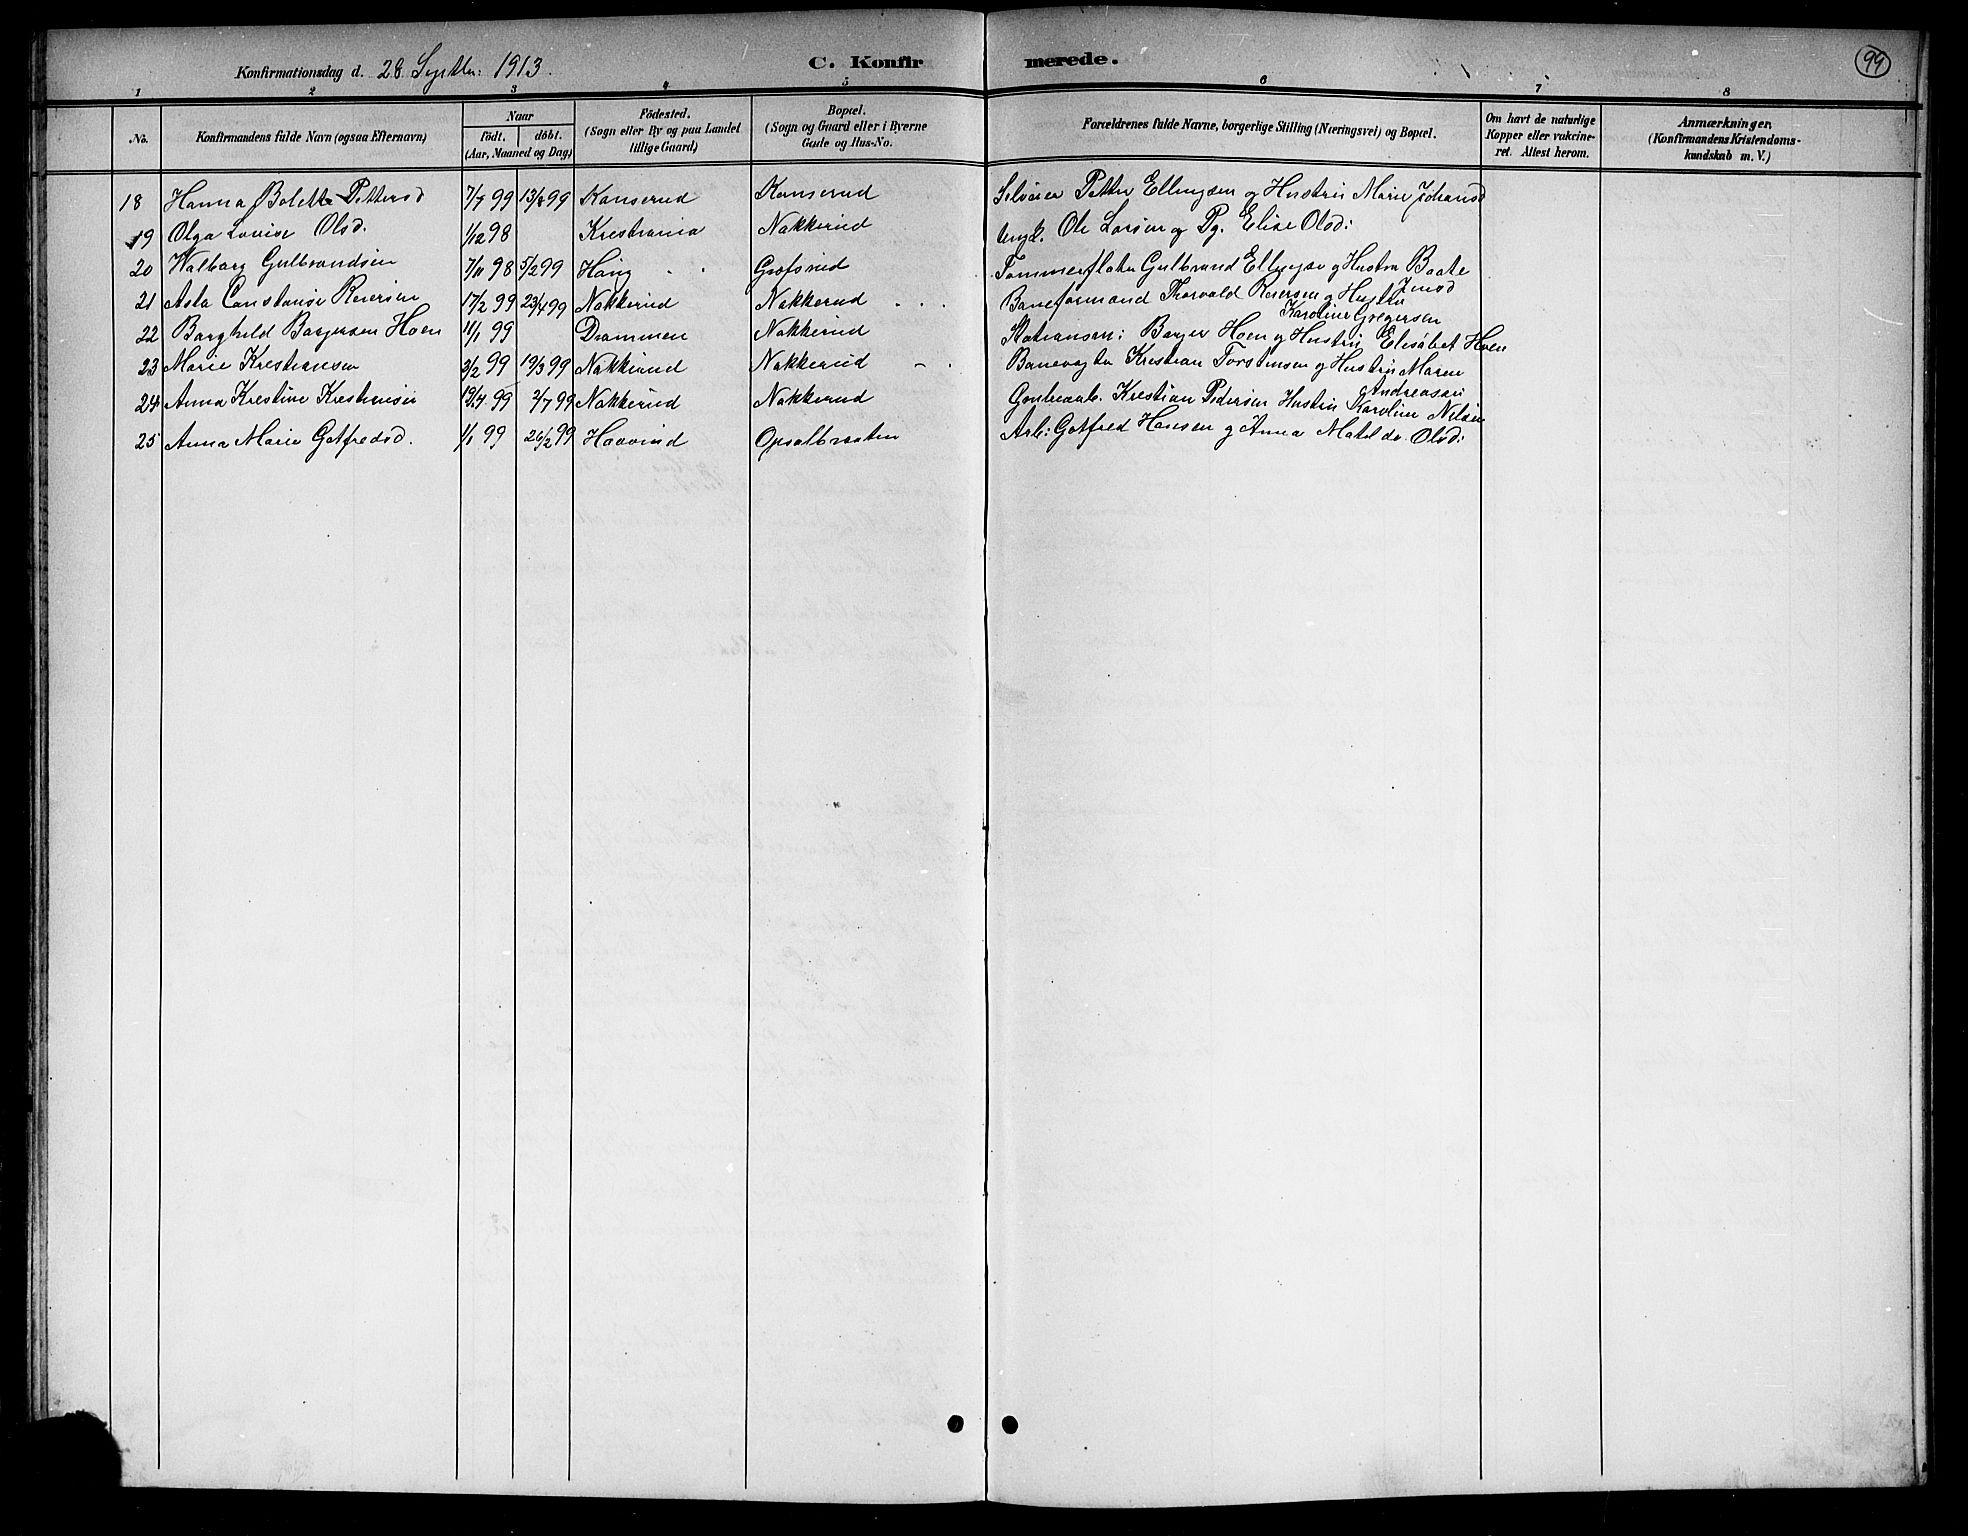 Konfirmationsdag d. 28 Septbr: 1913. C. Konfirmerede. 99
1 2 3 4 5 6 7 8
No. Konfirmandens fulde Navn (ogsaa Efternavn) Naar födt. döbt. (Aar, Maaned og Dag) Födested. (Sogn eller By og paa Landet tillige Gaard) Bopæl. (Sogn og Gaard eller i Byerne Gade og Hus-No. Forældrenes fulde Navne, borgerlige Stilling (Næringsvei) og Bopæl. Om havt de naturlige Kopper eller vakcineret. Attest herom. Anmærkninger, (Konfirmandens Kristendomskundskab m. V.)
18 Hanna Bolette Pettersd 7/7 99 13/8 99 Konserud Konserud Selveier Petter Ellingsen og Hustru Marie Johansd
19 Olga Lovise Olsd. 1/12 98 Krestiania Nakkerud Ungk. Ole Larsen og Pg. Elise Olsd:
20 Walborg Gulbrandsen 7/11 98 5/2 99 Haug Grøfsrud Tømmerfløter Gulbrand Ellingsen og Hustru Beate Jensd
21 Asta Constanse Reiersen 17/2 99 23/4 99 Nakkerud Nakkerud Baneformand Thorvald Reiersen og Hustru Karoline Gregersen
22 Borghild Børgersen Hoen 11/1 99 Drammen Nakkerud Børger Hoen og Hustru Elisabet Hoen
23 Marie Krestiansen 2/2 99 19/3 99 Nakkerud Nakkerud Banevogter Krestian Torstensen og Hustru Maren Andreassen
24 Anna Krestine Krestiansen 99 2/7 99 Nakkerud Nakkerud Krestian Pedersen Hustru Karoline Nilsen
25 Anna Marie Gotfredsd. 1/1 99 26/2 99 Haavind Opsalbraaten Arb: Gotfred Hansen og Anna Matilde Olsd: